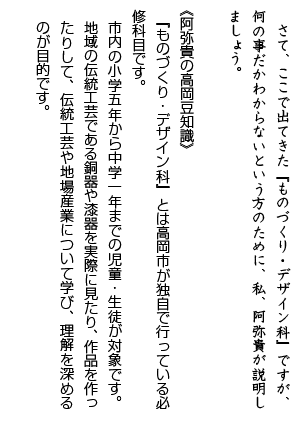 さて、ここで出てきた『ものづくり・デザイン科』ですが、
何の事だかわからないという方のために、私、阿弥貴が説明し
ましょう。
《阿弥貴の高岡豆知識》
『ものづくり・デザイン科』とは高岡市が独自で行っている必
修科目です。
市内の小学五年から中学一年までの児童・生徒が対象です。
地域の伝統工芸である銅器や漆器を実際に見たり、作品を作っ
たりして、伝統工芸や地場産業について学び、理解を深める
のが目的です。